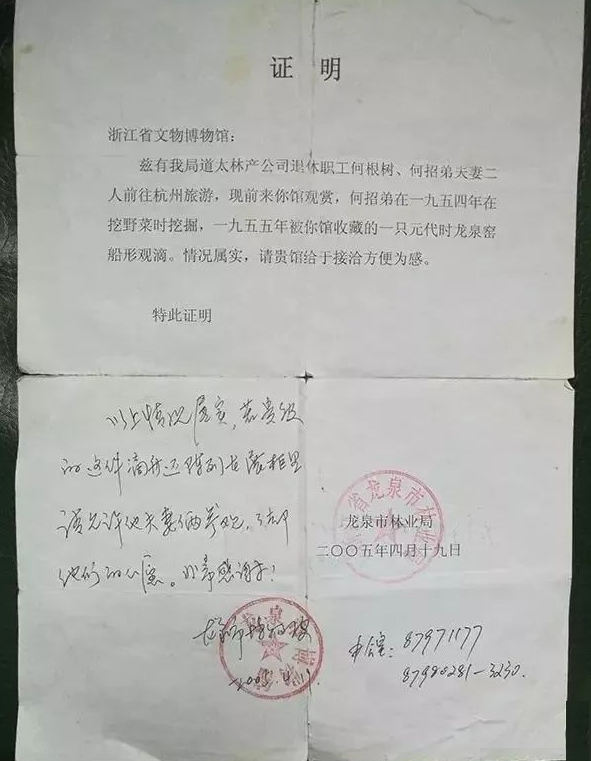 证明
浙江省文物博物馆：
兹有我局道太林产公司退休职工何根树、何招弟夫妻二
人前往杭州旅游，现前来你馆观赏，何招弟在一九五四年在
挖野菜时挖掘，一九五五年被你馆收藏的一只元代时龙泉窑
船形观滴。情况属实，请贵馆给于接洽方便为感。
特此证明
以上情况属实，若贵馆
的这件滴舟还陈列在展柜里
请允许他夫妻俩参观，
他们的心愿。非常感谢！
龙泉市林业局
二〇〇五年四月十九日
龙泉市博物馆
2005.4.
电话：87971177
87980281-3230.